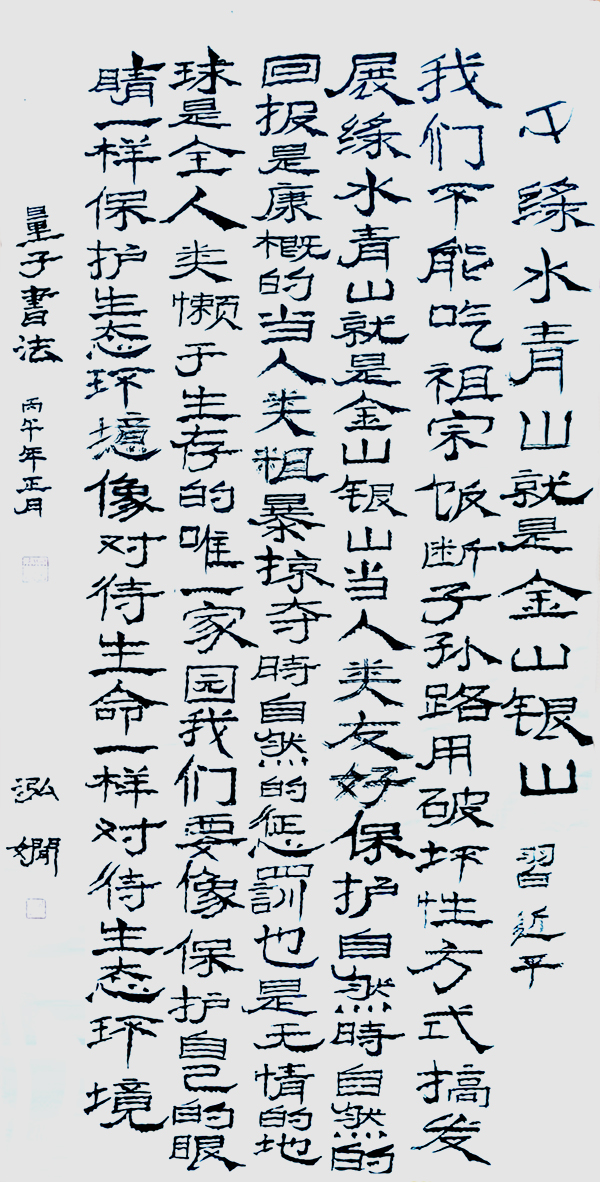 绿水青山就是金山银山 習近平
我们不能吃祖宗饭断子孙路用破坏性方式搞发
展绿水青山就是金山银山当人类友好保护自然時自然的
回报是康概的当人类粗暴掠夺時自然的惩罰也是无情的地
球是全人类懒于生存的唯一家园我们要像保护自己的眼
睛一样保护生态环境像对待生命一样对待生态环境
量子書法 丙午年正月 泓嫻